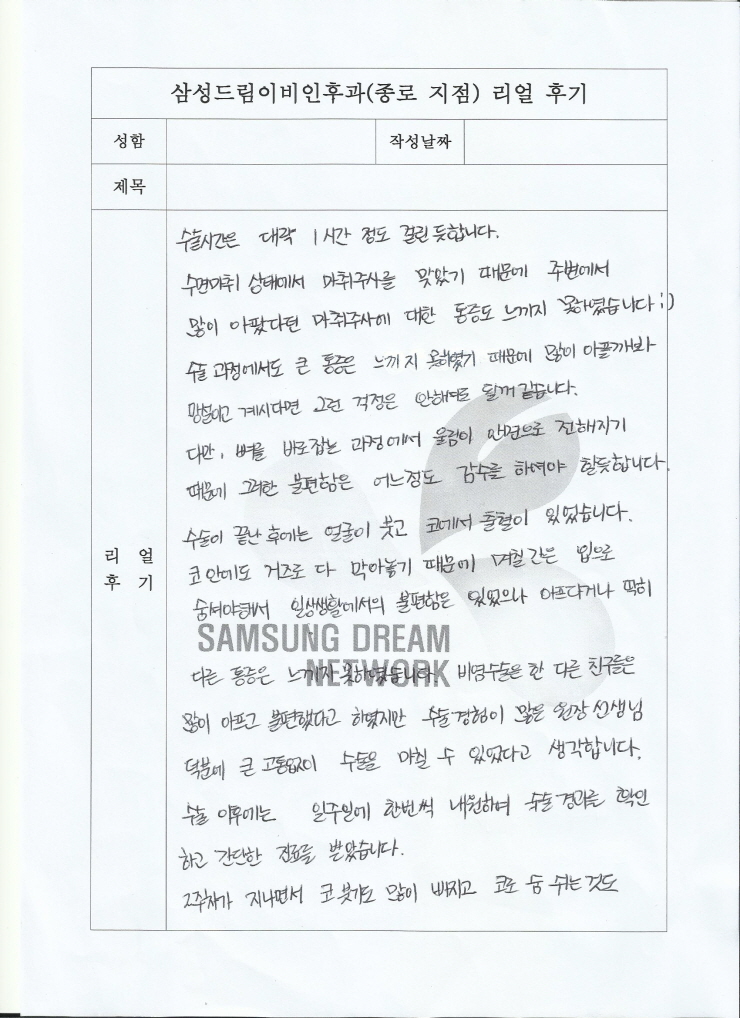 삼성드림이비인후과(종로 지점) 리얼 후기
성함
작성날짜
제목
리 얼
후 기
수술시간은 대략 1시간 정도 걸린듯합니다.
수면마취 상태에서 마취주사를 맞았기 때문에 주변에서
많이 아팠다던 마취주사에 대한 통증도 느끼지 못하였습니다 ;)
수술 과정에서도 큰 통증은 느끼지 못하였기 때문에 많이 아플까봐
망설이고 계시다면 그런 걱정은 안해도 될꺼 같습니다.
다만, 뼈를 바로잡는 과정에서 울림이 안면으로 전해지기
때문에 그러한 불편함은 어느정도 감수를 하셔야 할듯합니다.
수술이 끝난 후에는 얼굴이 붓고 코에서 출혈이 있었습니다.
코안에도 거즈로 다 막아놓기 때문에 며칠간은 입으로
숨셔야해서 일상생활에서의 불편함은 있었으나 아프다거나 딱히
SAMSUNG DREAM
NETWORK
다른 통증은 느끼지 못하였습니다. 비염수술은 한 다른 친구들은
많이 아프고 불편했다고 하였지만 수술경험이 많은 원장선생님
덕분에 큰 고통없이 수술을 마칠 수 있었다고 생각합니다.
수술 이후에는 일주일에 한번씩 내원하며 수술경과를 확인
하고 간단한 진료를 받았습니다.
2주차가 지나면서 코 붓기도 많이 빠지고 코로 숨 쉬는것도